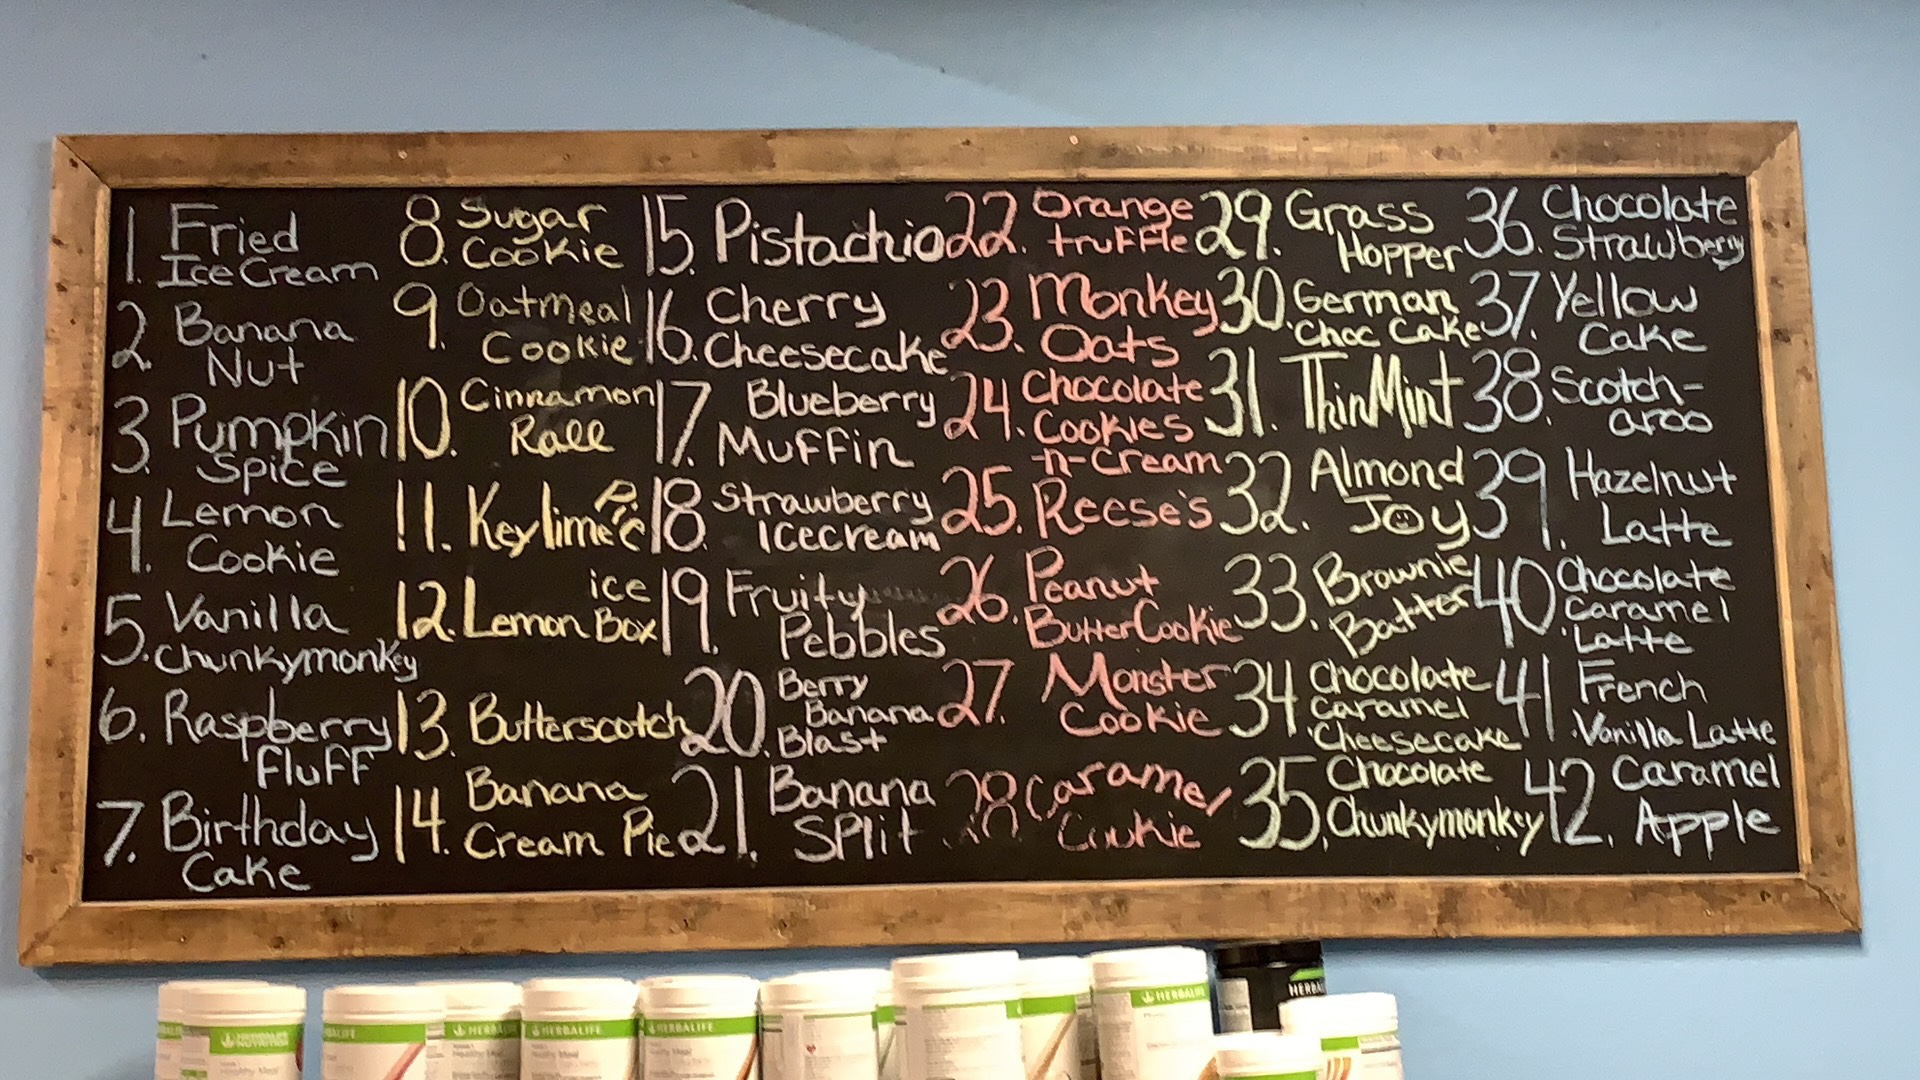 1. Fried
Ice Cream
2. Banana
Nut
3. Pumpkin
Spice
4. Lemon
Cookie
5. Vanilla
Chunkymonkey
6. Raspberry
Fluff
7. Birthday
Cake
8. Sugar
Cookie
9. Oatmeal
Cookie
10. Cinnamon
Roll
11. Keylime Pie
12. Lemon ice
Box
13. Butterscotch
14. Banana
Cream Pie
15. Pistachio
16. Cherry
Cheesecake
17. Blueberry
Muffin
18. Strawberry
Icecream
19. Fruity
Pebbles
20. Berry
Banana
Blast
21. Banana
Split
22. Orange
truffle
23. Monkey
Oats
24. Chocolate
Cookies
-n-Cream
25. Reese's
26. Peanut
Butter Cookie
27. Monster
Cookie
28. Caramel
Cookie
29. Grass
Hopper
30. German
Choc Cake
31. Thin Mint
32. Almond
Joy
33. Brownie
Batter
34. Chocolate
Caramel
Cheesecake
35. Chocolate
Chunkymonkey
36. Chocolate
Strawberry
37. Yellow
Cake
38. Scotch-
aroo
39. Hazelnut
Latte
40. Chocolate
Caramel
Latte
41. French
Vanilla Latte
42. Caramel
Apple
HERBALIFE
NUTRITION
HERBALIFE
HERBALIFE
HERBALIFE
HERBALIFE